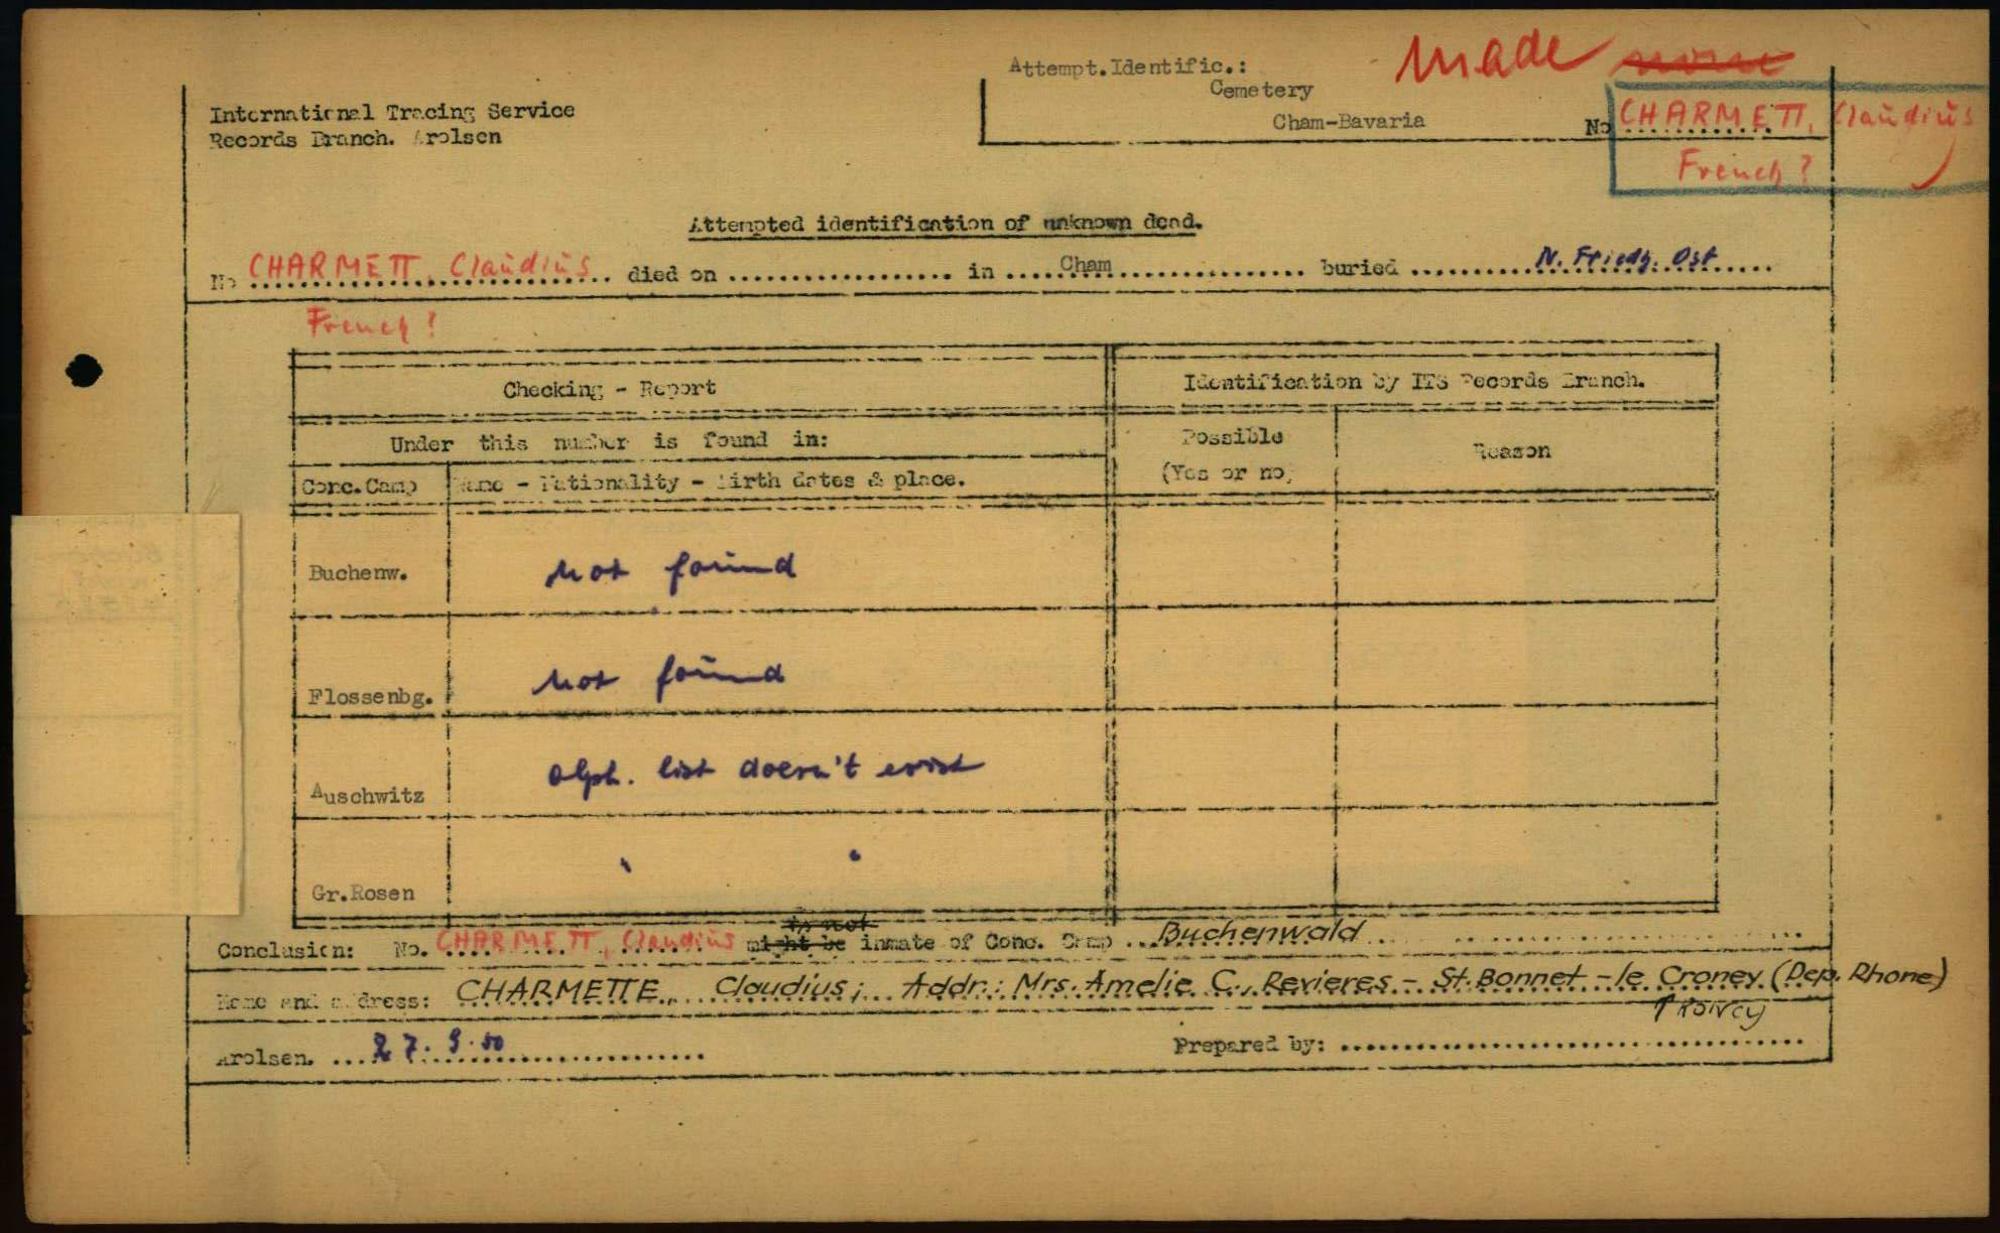 Attempt.Identific.: made none
Cemetery
International Tracing Service Cham-Bavaria No CHARMETT, Claudius
Records Branch. Arolsen
French?
Attempted identification of unknown dead.
No CHARMETT, Claudius died on .................... in ..... Cham ................ buried .......... N. Friedh. Ost .....
French?
Checking - Report Identification by ITS Records Branch.
Under this number is found in: Possible Reason
Conc.Camp Name - Nationality - Birth dates & place. (Yes or no)
Buchenw. not found
Flossenbg. not found
Auschwitz alph. list doesn't exist
Gr.Rosen
is not
Conclusion: No. CHARMETT, Claudius might be inmate of Conc. Camp ... Buchenwald
Name and address: CHARMETTE, Claudius; Addr.: Mrs. Amelie C., Revieres - St. Bonnet - le Croney (Dep. Rhone)
↑ RONCY
Arolsen. .... 27.9.50 .................... Prepared by: ....................................